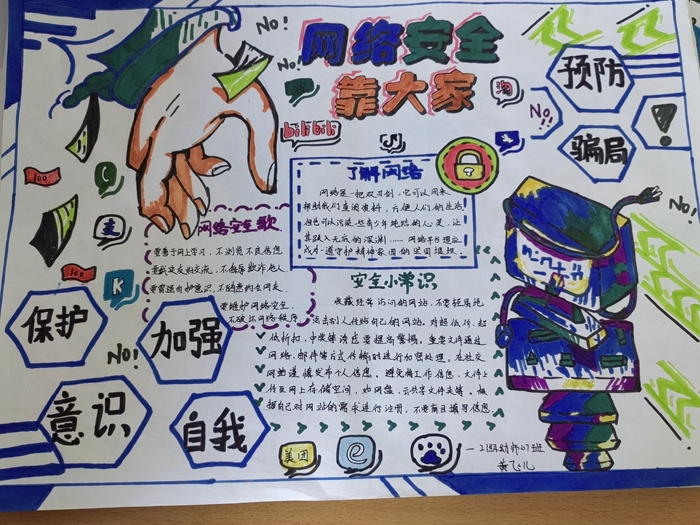 No!
No!
No!
网络安全
靠大家
预防
骗局
No!
!
淘
bilibili
100
100
麦
K
了解网络
网络是一把双刃剑,它可以用来
帮助我们查阅资料,方便人们的生活
但也可以污染些青少年纯洁的心灵,让
其跌入无底的深渊……网络平台理应
成为遵守护精神家园的坚固堤坝.
网络安全歌
要善于网上学习,不浏览不良信息
要诚实友好交流,不侮辱欺诈他人
要增强自护意识,不随意约会网友
要维护网络安全
不破坏网络秩序
安全小常识
收藏经常访问的网站,不要轻易地
点击别人传给自己的网站,对超低价、超
低折扣、中奖等诱惑要提高警惕。重要文件通过
网络、邮件等方式传输时进行加密处理。在社交
网站谨慎发布个人信息。
据自己对网站的需求进行注册,不要盲目填写信息
保护
加强
No!
意识
自我
No!
美团
e
一21级幼师07班
黄飞儿